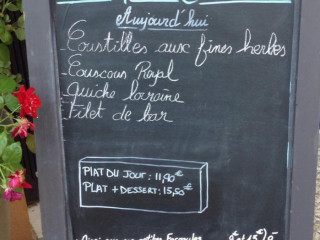 Aujourd'hui
Coustilles aux fines herbes
Couscous Royal
Quiche lorraine
Filet de bar
PLAT DU JOUR : 11,90€
PLAT + DESSERT : 15,50€